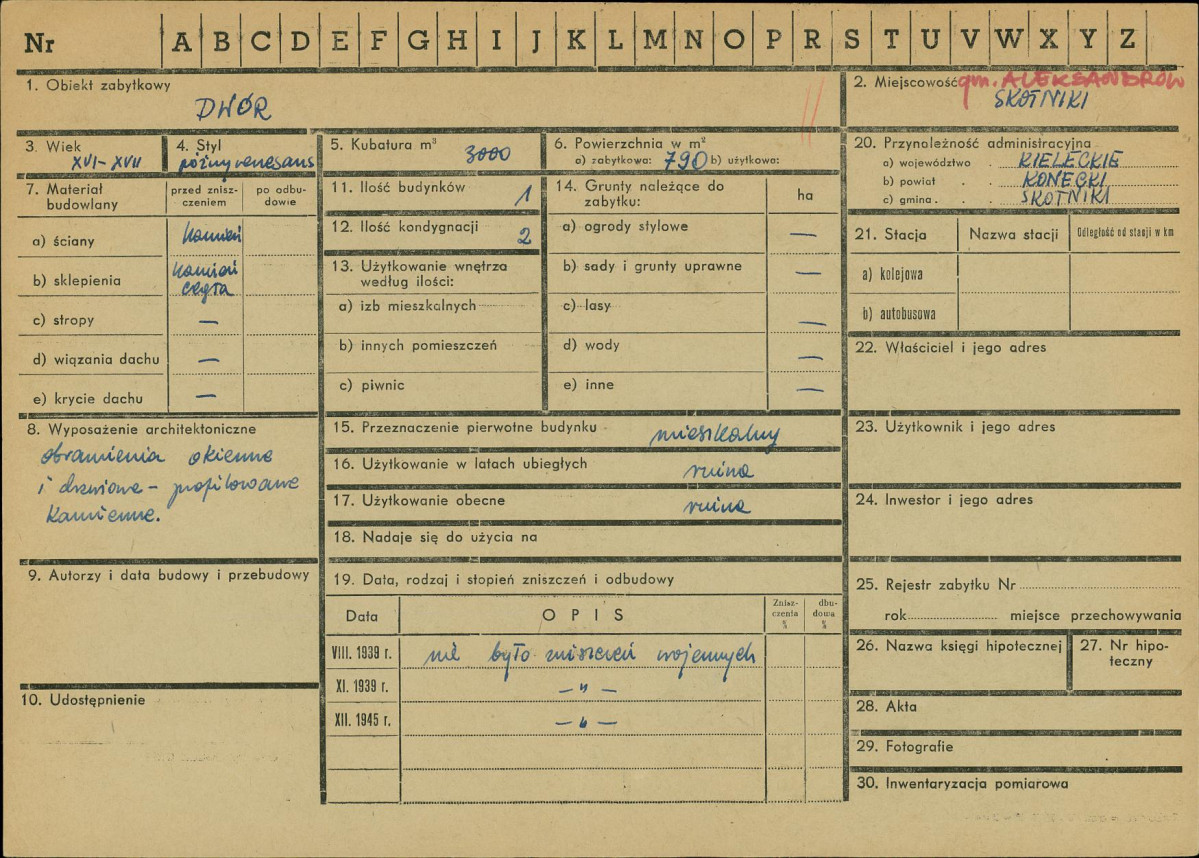 Nr A B C D E F G H I J K L M N O P R S T U V W X Y Z
1. Obiekt zabytkowy
DWÓR
2. Miejscowość gm. ALEKSANDRÓW
SKOTNIKI
3. Wiek
XVI-XVII
4. Styl
późny renesans
5. Kubatura m³
3000
6. Powierzchnia w m²
a) zabytkowa: 790 b) użytkowa:
7. Materiał budowlany
przed zniszczeniem
po odbudowie
a) ściany kamień
b) sklepienia kamień
cegła
c) stropy —
d) wiązania dachu —
e) krycie dachu —
8. Wyposażenie architektoniczne
obramienia okienne
i drzwiowe - profilowane
kamienne.
9. Autorzy i data budowy i przebudowy
10. Udostępnienie
11. Ilość budynków 1
12. Ilość kondygnacji 2
13. Użytkowanie wnętrza
według ilości:
a) izb mieszkalnych
b) innych pomieszczeń
c) piwnic
14. Grunty należące do
zabytku:
ha
a) ogrody stylowe —
b) sady i grunty uprawne —
c) lasy —
d) wody —
e) inne —
15. Przeznaczenie pierwotne budynku mieszkalny
16. Użytkowanie w latach ubiegłych ruina
17. Użytkowanie obecne ruina
18. Nadaje się do użycia na
19. Data, rodzaj i stopień zniszczeń i odbudowy
Data OPIS Zniszczenia % dbudowa %
VIII. 1939 r. nie było zniszczeń wojennych
XI. 1939 r. — „ —
XII. 1945 r. — „ —
20. Przynoleżność administracyjna
a) województwo KIELECKIE
b) powiat KONECKI
c) gmina SKOTNIKI
21. Stacja Nazwa stacji Odległość od stacji w km
a) kolejowa
b) autobusowa
22. Właściciel i jego adres
23. Użytkownik i jego adres
24. Inwestor i jego adres
25. Rejestr zabytku Nr
rok miejsce przechowywania
26. Nazwa księgi hipotecznej
27. Nr hipoteczny
28. Akta
29. Fotografie
30. Inwentaryzacja pomiarowa